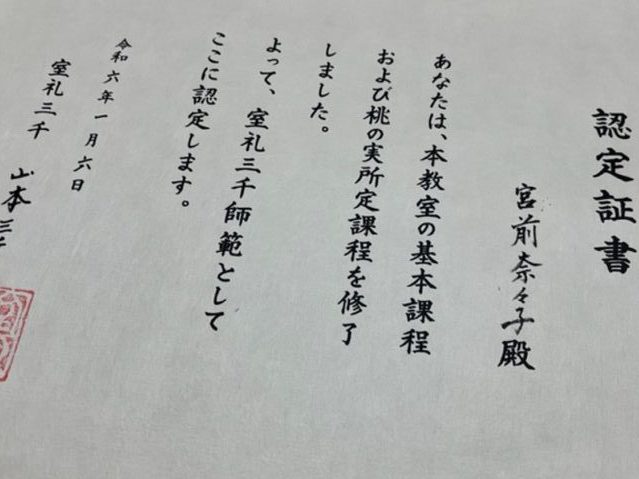 認定証書
宮前奈々子殿
あなたは、本教室の基本課程
および桃の実所定課程を修了
しました。
よって、室礼三千師範として
ここに認定します。
令和六年一月六日
室礼三千
山本三